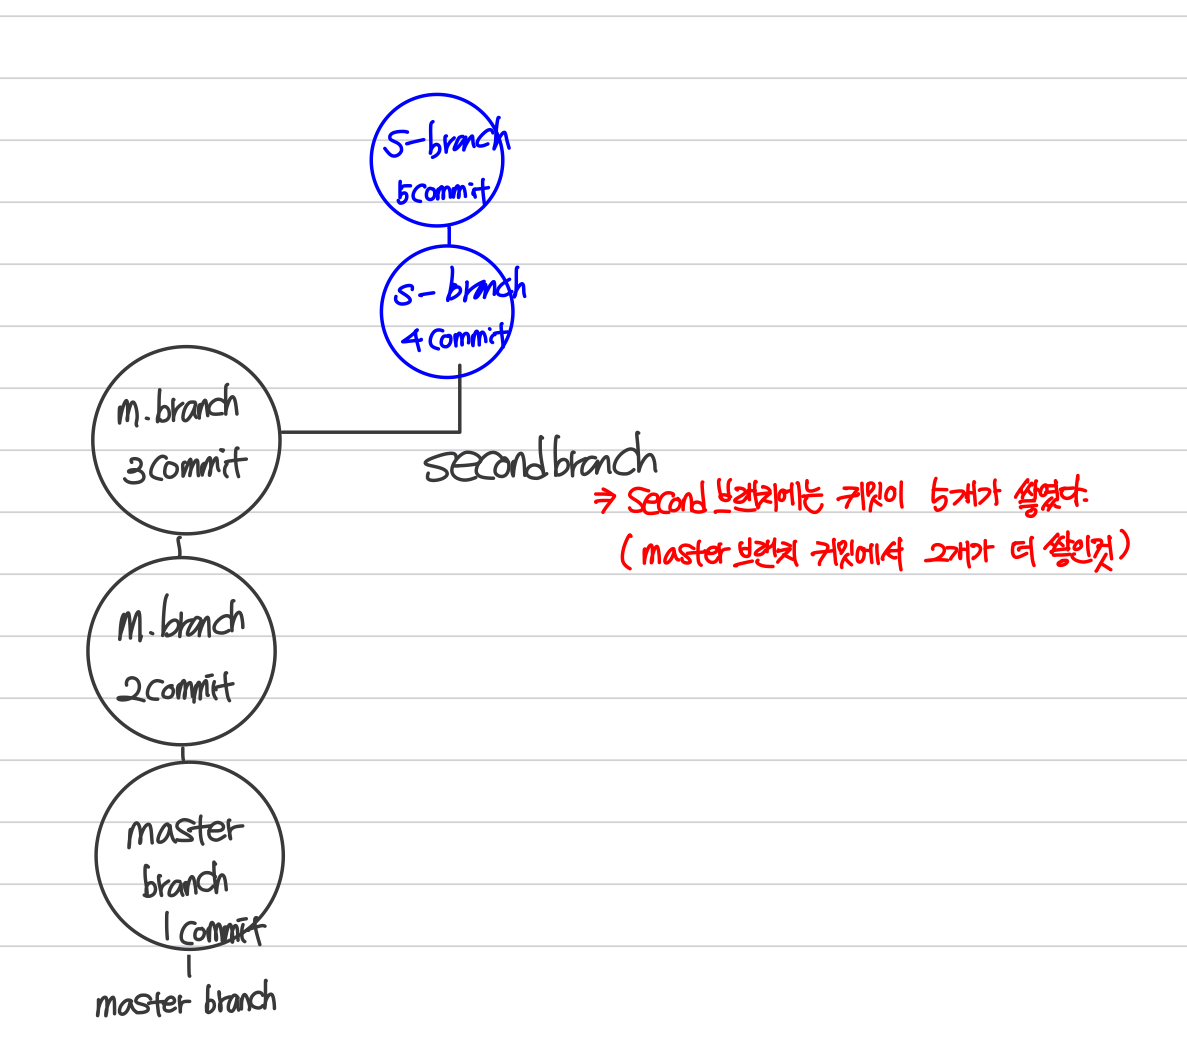 s-branch
5commit
s-branch
4commit
m.branch
3commit
secondbranch
⇒ second 브랜치에는 커밋이 5개가 쌓였다.
(master 브랜치 커밋에서 2개가 더 쌓인것)
m.branch
2commit
master
branch
1commit
master branch